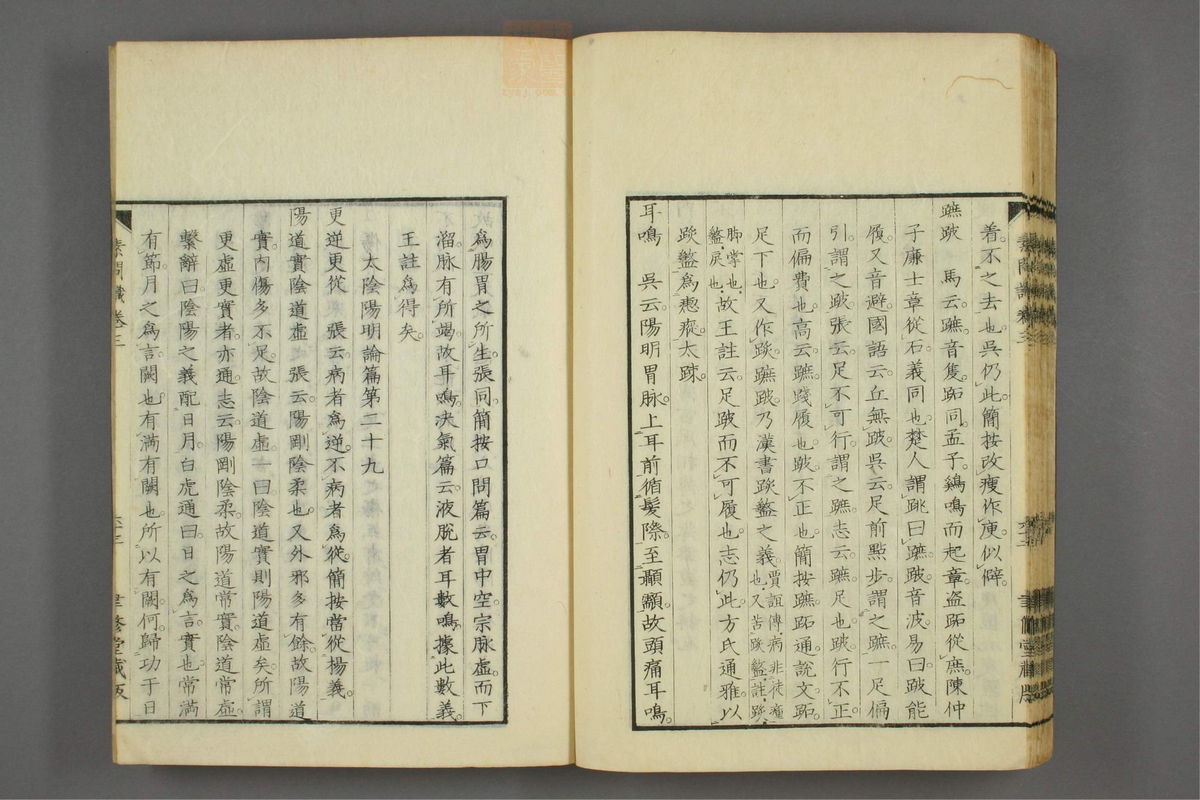 着。不之去也。吳仍此。簡按改瘦作庾。似僻。
蹠跛 馬云。蹠音隻。跖同。孟子。鷄鳴而起章。盜跖從庶。陳仲
子廉士章從石。義同也。楚人謂跳曰蹠。跛音波。易曰跛能
履。又音避。國語云。丘無跛。吳云。足前點步。謂之蹠。一足偏
引。謂之跛。張云。足不可行。謂之蹠。志云。蹠。足也。跛。行不正
而偏費也。高云。蹠。踐履也。跛。不正也。簡按蹠。跖通。說文。跖
足下也。又作𨂂。蹠跛。乃漢書𨂂盭之義。賈誼傳。病非徒瘇也。又苦𨂂盭。註。𨂂
脚掌也。盭。戾也。故王註云。足跛而不可履也。志仍此。方氏通雅。以
𨂂盭為瘛瘲。太疎
耳鳴 吳云。陽明胃脉。上耳前。循髮際。至顳顬。故頭痛耳鳴。
素問識卷三
聿修堂藏版
為腸胃之所生。張同。簡按口問篇云。胃中空。宗脉虛。而下
溜。脉有所竭。故耳鳴。決氣篇云。液脫者。耳數鳴。據此數義。
王註為得矣。
太陰陽明論篇第二十九
更逆更從 張云。病者為逆。不病者為從。簡按當從楊義。
陽道實陰道虛 張云。陽剛陰柔也。又外邪多有餘。故陽道
實。內傷多不足。故陰道虛。一曰。陰道實。則陽道虛矣。所謂
更虛更實者。亦通。志云。陽剛陰柔。故陽道常實。陰道常虛。
繫辭曰。陰陽之義配日月。白虎通曰。日之為言。實也。常滿
有節。月之為言。闕也。有滿有闕也。所以有闕何。歸功于日
素問識卷三
六十三
聿修堂藏版